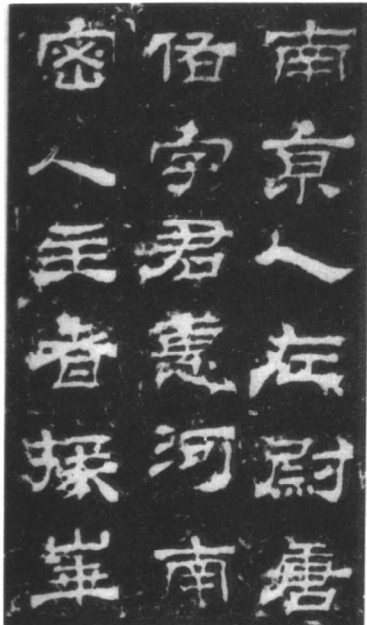 南京人左尉唐
佑字君惠河南
密人主者掾華